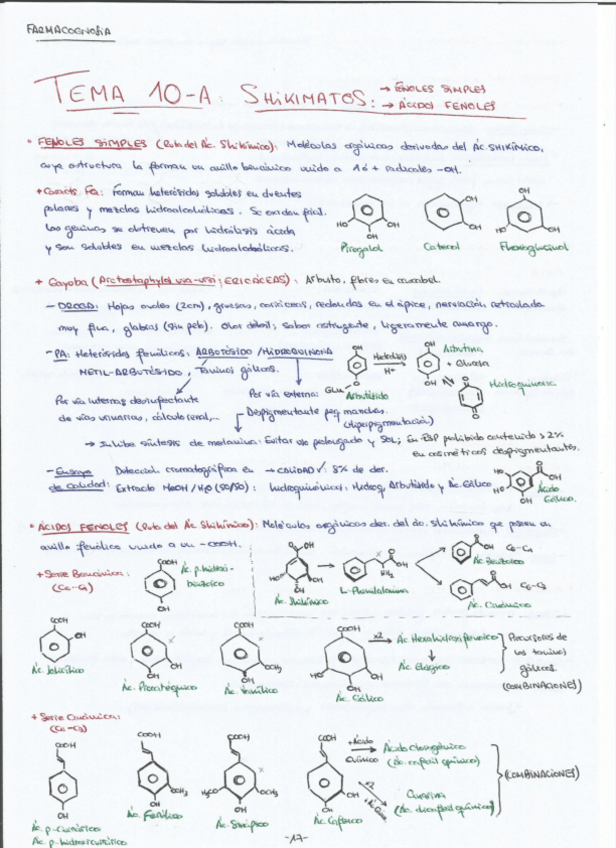 FARMACOGNOSIA
TEMA 10-A: SHIKIMATOS: → FENOLES SIMPLES
→ ÁCIDOS FENOLES
* FENOLES SIMPLES (Ruta del Ác. Shikímico): Moléculas orgánicas derivadas del Ác. SHIKÍMICO,
cuya estructura la forman un anillo bencénico unido a 1 ó + radicales -OH.
+ Caracts. FQ: Forman heterósidos solubles en
polares y mezclas hidroalcohólicas. Se oxidan fácil.
Las geninas se obtienen por hidrólisis ácida
y son solubles en mezclas hidroalcohólicas.
OH
OH
OH
HO
OH
OH
HO
OH
Pirogalol
Catecol
Floroglucinol
+ Gayuba (Arctostaphylos uva-ursi; ERICÁCEAS): Arbusto, flores en
- DROGA: Hojas ovales (2cm), gruesas, coriáceas, redondas en el ápice, nerviación reticulada
muy fina, glabras (sin pelo). Olor débil; Sabor astringente, ligeramente amargo.
- PA: Heterósidos fenólicos: ARBUTÓSIDO / HIDROQUINONA
METIL-ARBUTÓSIDO, Taninos gálicos.
OH
Hidrólisis
H⁺
OH
Arbutina
+ Glucosa
Glu
Arbutósido
OH
Hidroquinona
Por vía interna: desinfectante
de vías urinarias, cálculo renal,...
Por vía externa:
Despigmentante peq. manchas.
(hiperpigmentación)
→ Inhibe síntesis de melanina: Evitar uso prolongado y SOL; En ESP prohibido contenido > 2%
en cosméticos despigmentantes.
- Ensayo
de calidad:
Detección cromatográfica en → CALIDAD ✓: 8% de der.
Extracto MeOH/H₂O (50/50): hidroquinónicos: Hidroq, Arbutósido y Ác. Gálico
Ácido
Gálico.
* ÁCIDOS FENOLES (Ruta del Ác. Shikímico): Moléculas orgánicas der. del ác. shikímico que poseen un
anillo fenólico unido a un -COOH.
+ Serie Bencénica:
(C6-C1)
COOH
OH
Ác. p-hidroxi-
benzoico
Ác. Shikímico
NH₂
L-Fenilalanina
C6-C1
Ác. Benzoico
C6-C3
Ác. Cinámico
COOH
OH
Ác. Salicílico
COOH
OH
OH
Ác. Protocatéquico
COOH
OCH₃
OH
Ác. Vanílico
COOH
HO
OH
OH
Ác. Gálico
x2
Ác. Hexahidroxidifénico
Ác. Elágico
Precursores de
los taninos
gálicos.
(COMBINACIONES)
+ Serie Cinámica:
(C6-C3)
COOH
OH
Ác. p-Cumárico
Ác. p-hidroxicinámico
COOH
OCH₃
OH
Ác. Ferúlico
COOH
H₃CO
OCH₃
OH
Ác. Sinápico
COOH
OH
OH
Ác. Cafeico
+Ácido
Quínico
Ácido Clorogénico
(Ác. cafeil quínico)
x2
Cinarina
(Ác. dicafeil quínico)
(COMBINACIONES)
-17-